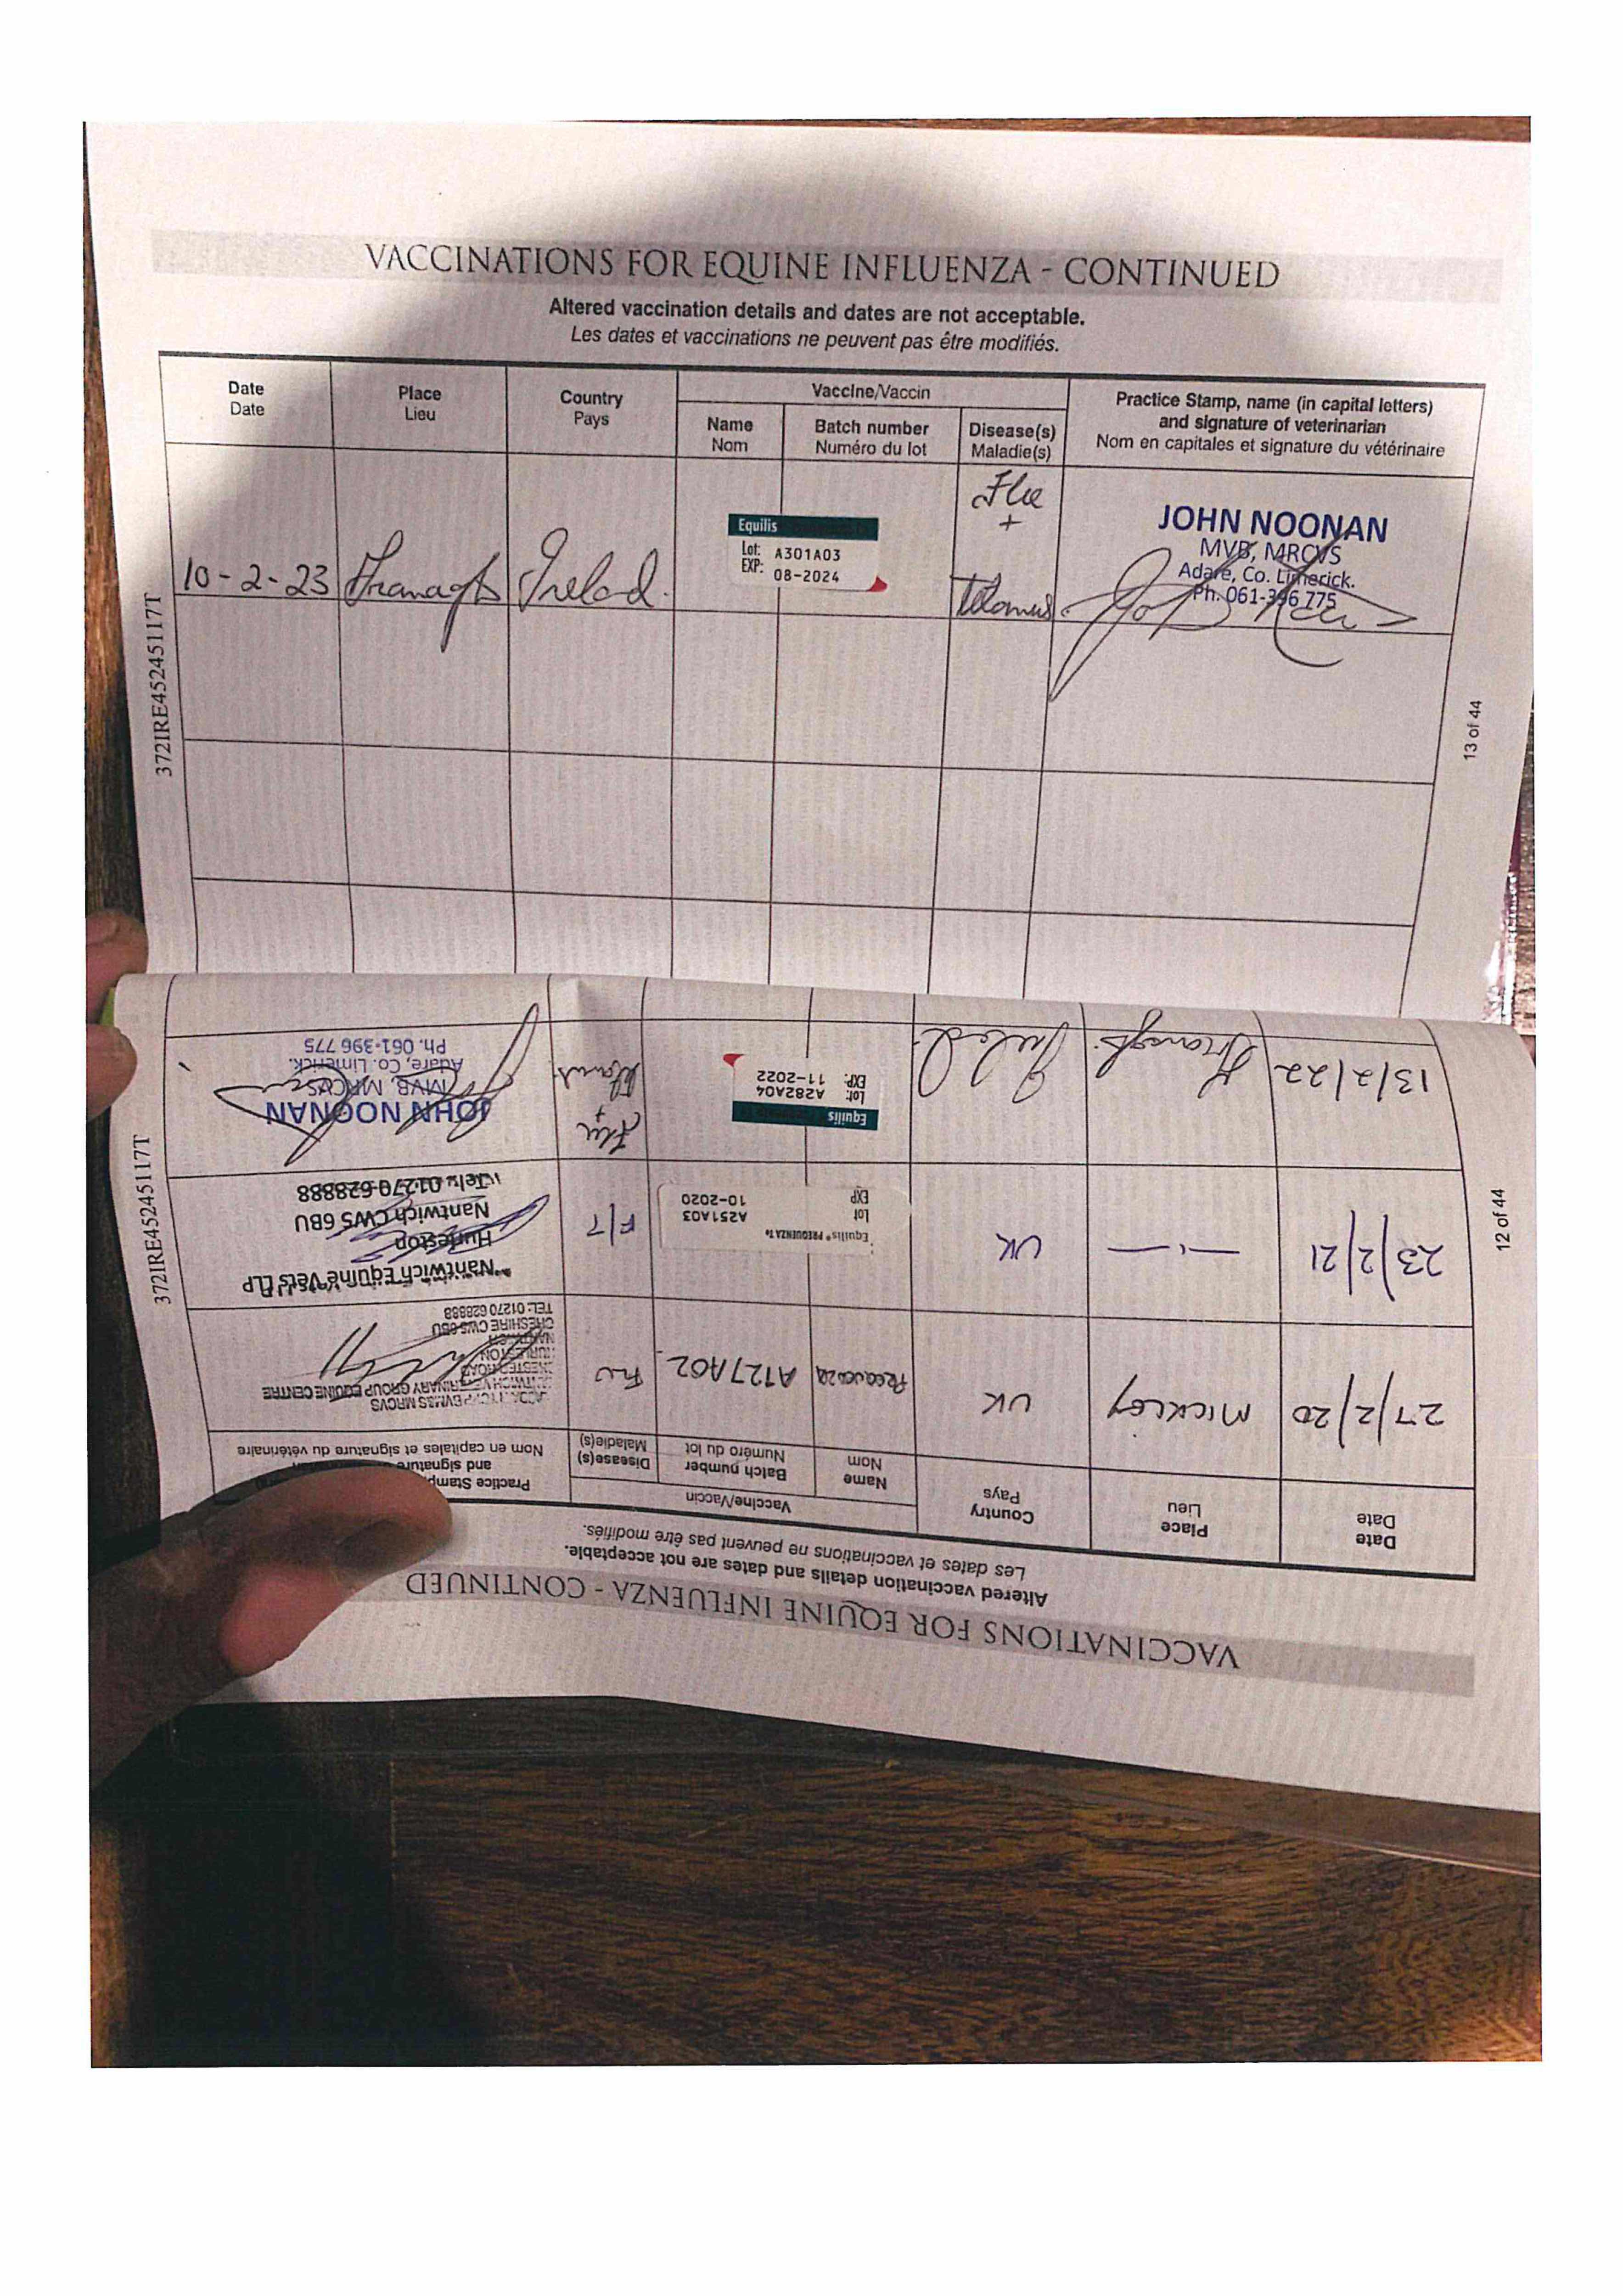 VACCINATIONS FOR EQUINE INFLUENZA - CONTINUED
Altered vaccination details and dates are not acceptable.
Les dates et vaccinations ne peuvent pas être modifiés.
Date
Date
Place
Lieu
Country
Pays
Vaccine/Vaccin
Name
Nom
Batch number
Numéro du lot
Disease(s)
Maladie(s)
Practice Stamp, name (in capital letters)
and signature of veterinarian
Nom en capitales et signature du vétérinaire
10-2-23
Equilis
Lot: A301A03
EXP: 08-2024
Flu
+
JOHN NOONAN
MVB, MRCVS
Adare, Co. Limerick.
Ph. 061-396 775
372IRE45245117T
13 of 44
VACCINATIONS FOR EQUINE INFLUENZA - CONTINUED
Altered vaccination details and dates are not acceptable.
Les dates et vaccinations ne peuvent pas être modifiés.
Date
Date
Place
Lieu
Country
Pays
Vaccine/Vaccin
Name
Nom
Batch number
Numéro du lot
Disease(s)
Maladie(s)
Practice Stamp
and signature
Nom en capitales et signature du vétérinaire
27/2/20
MICKLEY
UK
A127A02
FLU
VETERINARY GROUP EQUINE CENTRE
CHESHIRE CW5 6BU
TEL: 01270 628888
23/2/21
UK
Equilis® PREQUENZA Te
Lot A251A03
EXP 10-2020
F/T
Nantwich Equine Vets LLP
Hurleston
Nantwich CW5 6BU
Tel: 01270 628888
13/2/22
Equilis
Lot: A282A04
EXP: 11-2022
Flu
+
JOHN NOONAN
MVB, MRCVS
Adare, Co. Limerick.
Ph. 061-396 775
372IRE45245117T
12 of 44